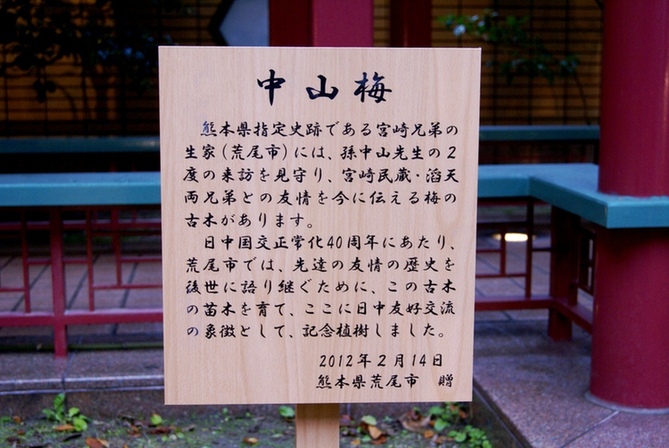 中山梅
熊本県指定史跡である宮崎兄弟の
生家(荒尾市)には、孫中山先生の2
度の来訪を見守り、宮崎民蔵・滔天
両兄弟との友情を今に伝える梅の
古木があります。
日中国交正常化40周年にあたり、
荒尾市では、先達の友情の歴史を
後世に語り継ぐために、この古木
の苗木を育て、ここに日中友好交流
の象徴として、記念植樹しました。
2012年2月14日
熊本県荒尾市 贈